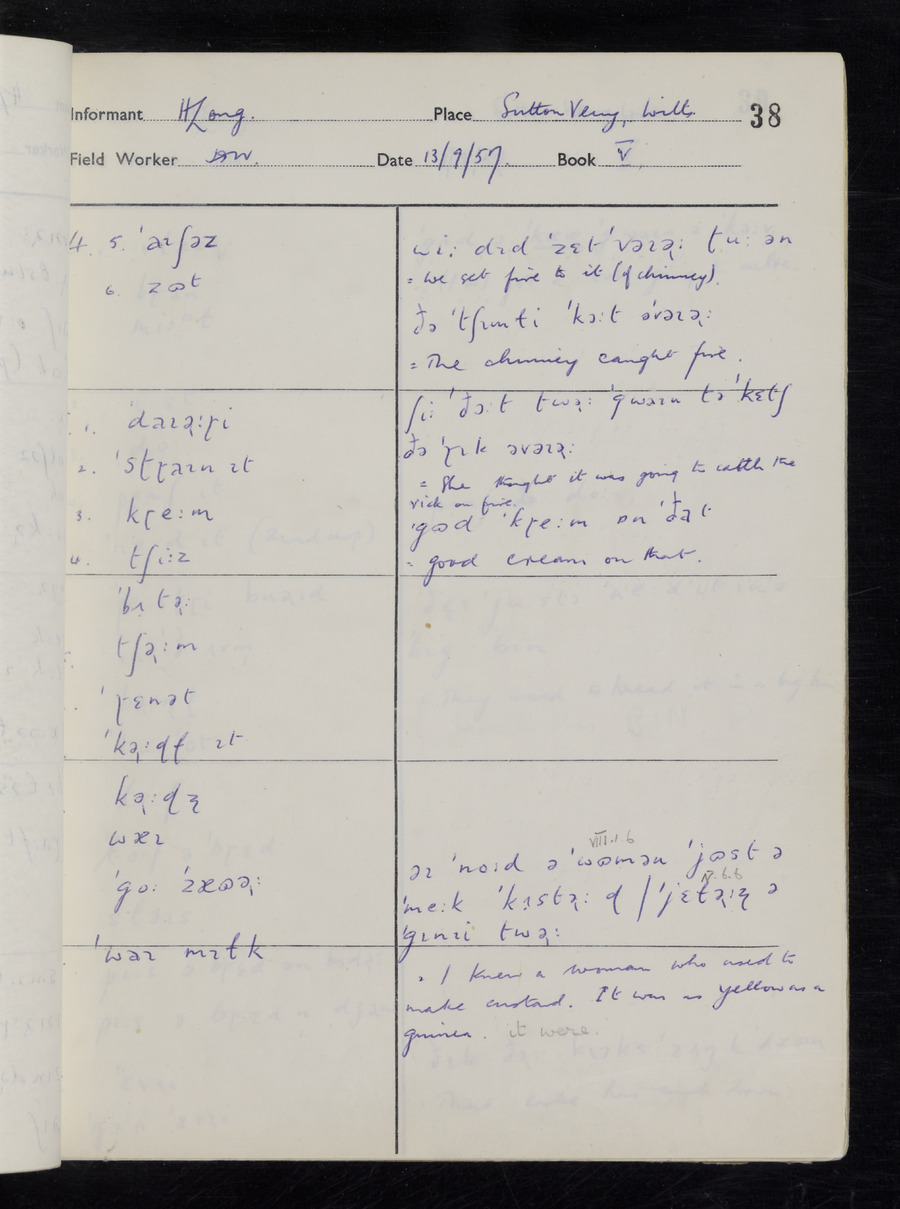 Informant H Long. Place Sutton Veny, Wilts. 38
Field Worker Date 13/9/57. Book V
4. 5. ˈaɪʃəz
6. zʊt
wiː dɪd ˈzɛt ˈvəɪəɻː tuː ən
= we set fire to it (of chimney).
ðə ˈtʃɪmti ˈkɔːt əˈvəɪəɻː
= The chimney caught fire.
1. ˈdaɪəɻːɻi
2. ˈstɻaɪn ɪt
3. kɻeːm
4. tʃiːz
ʃiː ˈðɔːt twəɻː ˈgwəɪn tə ˈkɛtʃ
ðə ˈɻɪk əvəɪəɻː
= She thought it was going to catch the
rick on fire.
ˈgʊd ˈkɻeːm ɒn ˈðat
= good cream on that.
ˈbɪtəɻː
tʃəɻːm
ˈɻɛnət
ˈkəɻːdɫ ɪt
kəɻːdz
wæɪ
ˈgoː ˈzæʊəɻː
VIII.1.6
əɪ ˈnoːd ə ˈwʊmən ˈjʊst ə
V.6.6
ˈmeːk ˈkɪstəɻːd | ˈjɛɫəɻːz ə
ˈgɪniː twəɻː
ˈwəɪ mɪɫk
= I knew a woman who used to
make custard. It was as yellow as a
guinea. it were.